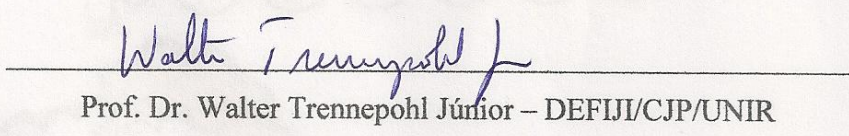 Walter Trennepohl Jr
Prof. Dr. Walter Trennepohl Júnior – DEFIJI/CJP/UNIR